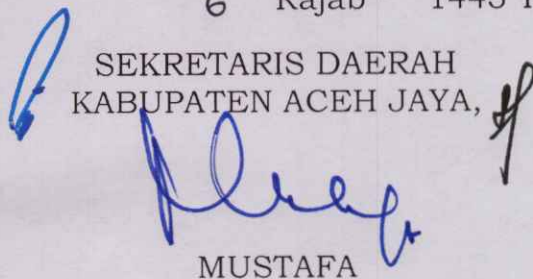 6 Rajab 1443
SEKRETARIS DAERAH
KABUPATEN ACEH JAYA,
MUSTAFA